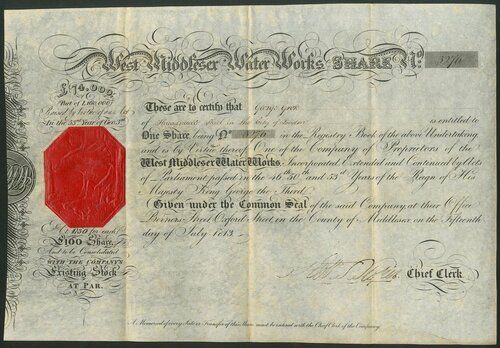 West Middlesex Water Works SHARE No.
£74,000,
Part of £160,000
Raised by Virtue of an Act
In the 53rd Year of Geo. 3rd
These are to certify that
is entitled to
One Share being No in the Registry-Book of the above Undertaking,
and is by Virtue thereof One of the Company of Proprietors of the
West Middlesex Water Works, Incorporated, Extended and Continued by Acts
of Parliament passed in the 46th 50th and 53rd Years of the Reign of His
Majesty King George the Third.
Given under the Common Seal of the said Company, at their Office
Berners Street Oxford Street, in the County of Middlesex, on the Fifteenth
day of July 1813.
At £50 for each
£100 Share,
And to be Consolidated
WITH THE COMPANY'S
Existing Stock
AT PAR.
Chief Clerk
A Memorial of every Sale or Transfer of this Share must be entered with the Chief Clerk of the Company.